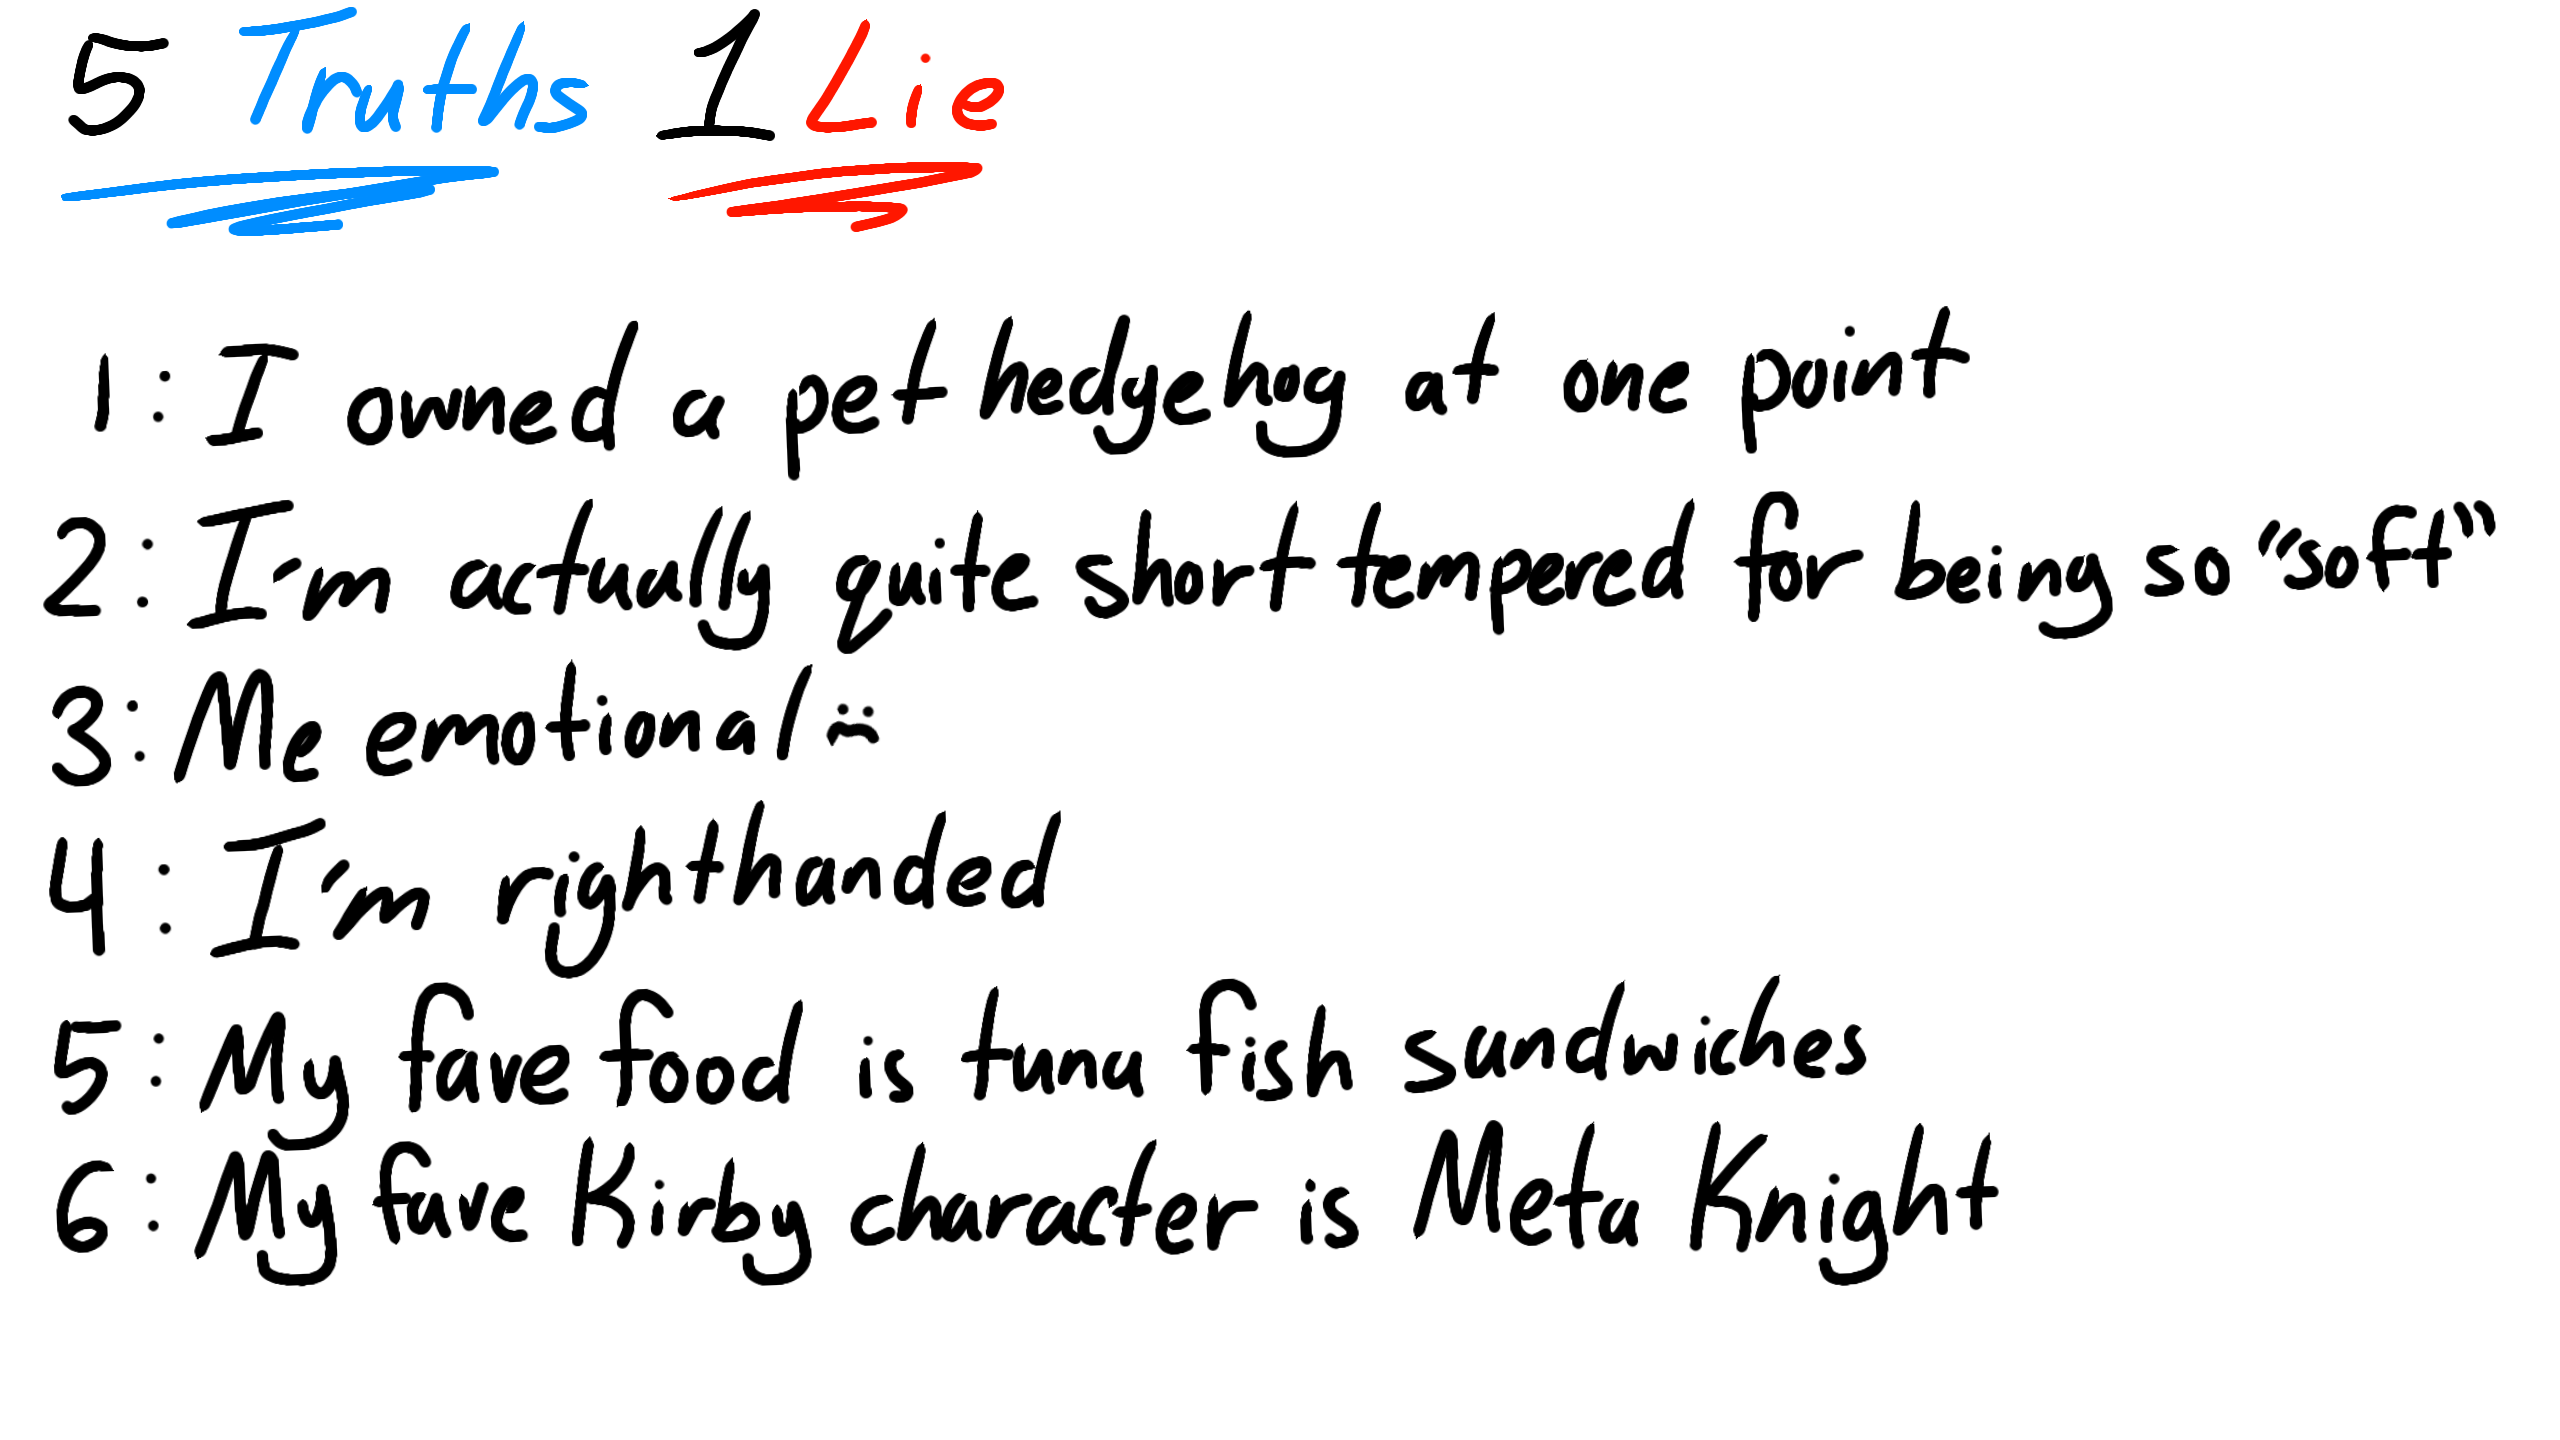 5 Truths 1 Lie
1: I owned a pet hedgehog at one point
2: I'm actually quite short tempered for being so "soft"
3: Me emotional :(
4: I'm righthanded
5: My fave food is tuna fish sandwiches
6: My fave Kirby character is Meta Knight